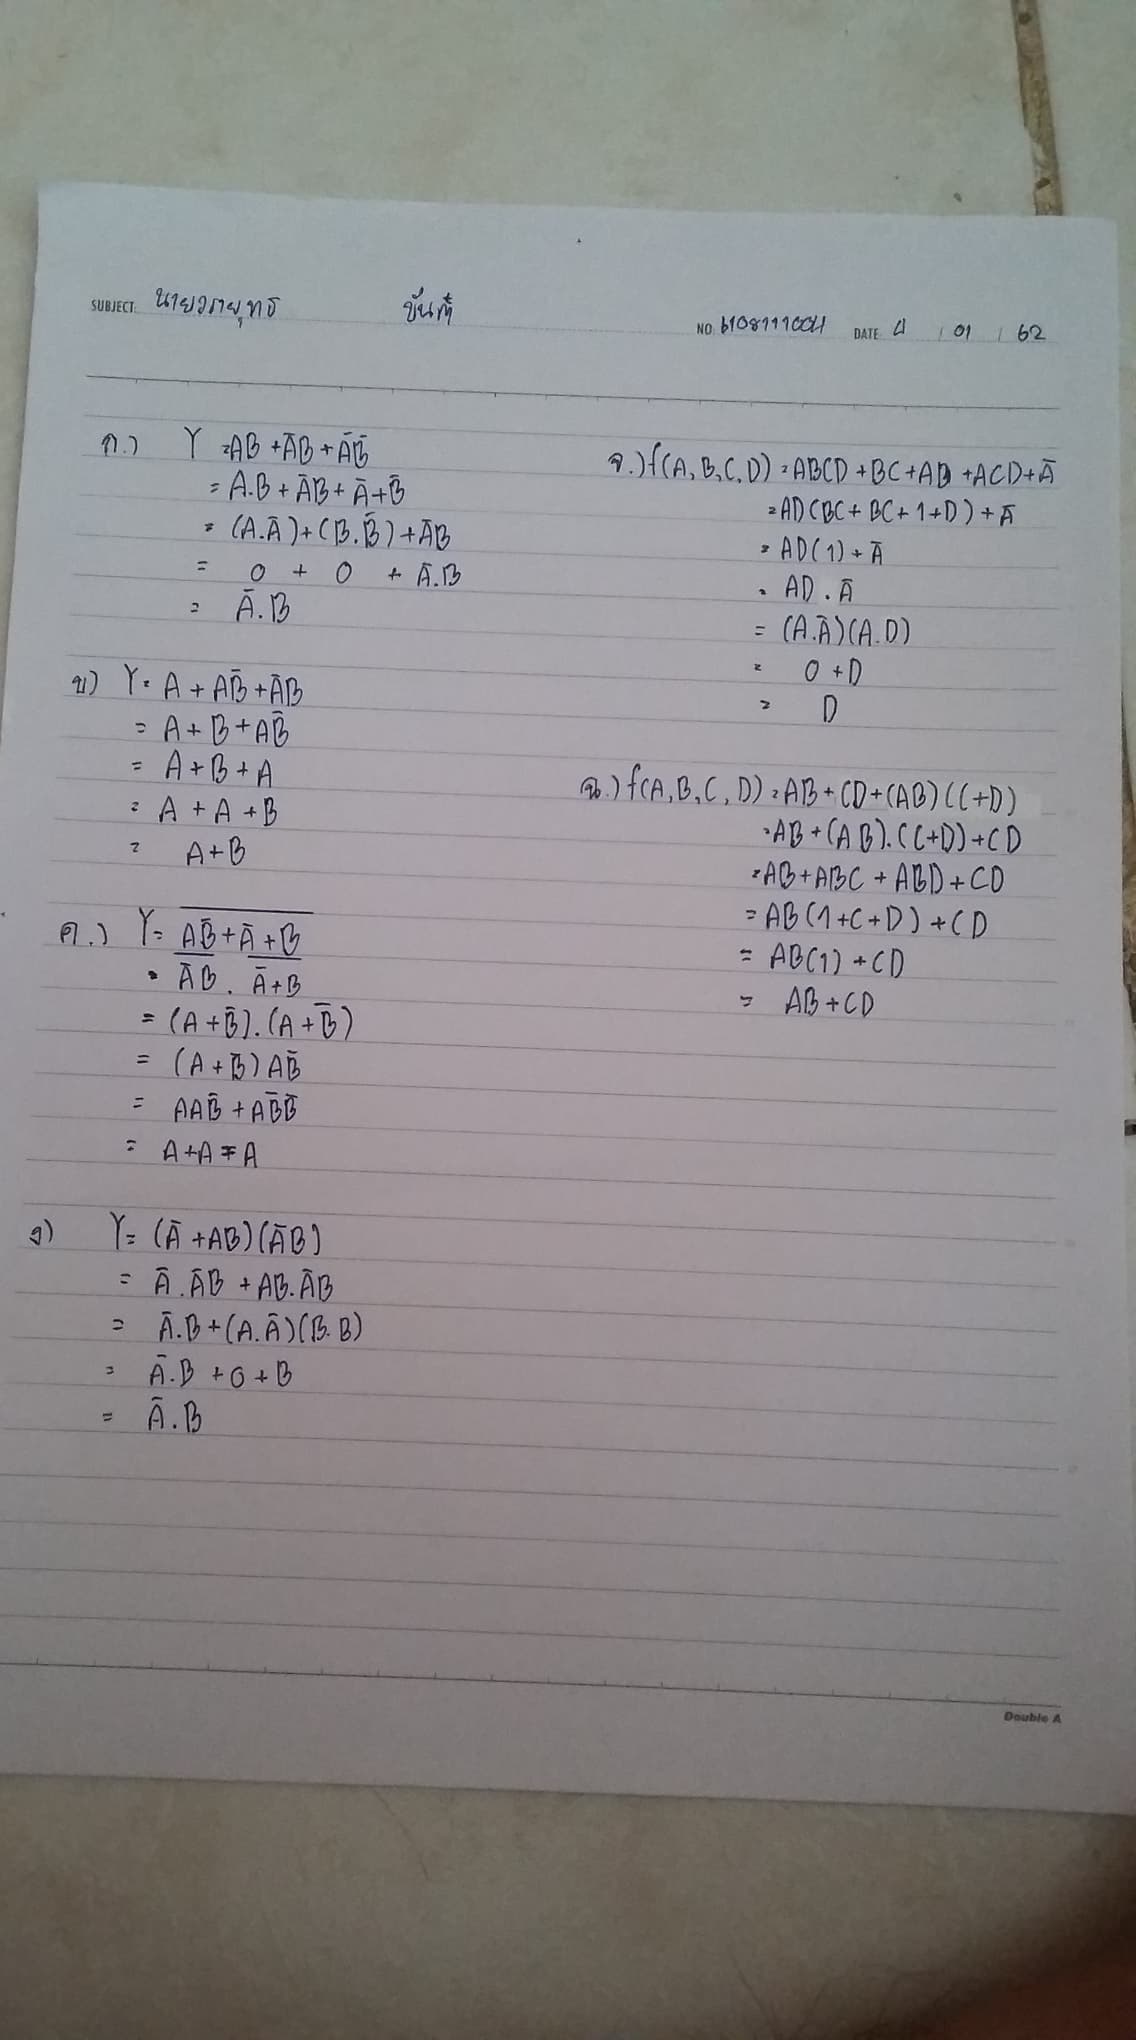 SUBJECT: นายวรายุทธ ขันตี NO. 6108111004 DATE 4 / 01 / 62
ก.) Y = AB + ĀB + ĀB̄
= A.B + ĀB + Ā + B̄
= (A.Ā) + (B.B̄) + ĀB
= 0 + 0 + Ā.B
= Ā.B
ข) Y = A + AB̄ + ĀB
= A + B + AB̄
= A + B + A
= A + A + B
= A + B
ค.) Y = \overline{AB̄ + Ā + B}
= \overline{ĀB} . \overline{Ā + B}
= (A + B̄).(A + B̄)
= (A + B̄) AB̄
= AAB̄ + AB̄B̄
= A + A = A
ง) Y = (Ā + AB)(ĀB)
= Ā.ĀB + AB.ĀB
= Ā.B + (A.Ā)(B.B)
= Ā.B + 0 + B
= Ā.B
จ.) f(A,B,C,D) = ABCD + BC + AD + ACD + Ā
= AD(BC + BC + 1 + D) + Ā
= AD(1) + Ā
= AD . Ā
= (A.Ā)(A.D)
= 0 + D
= D
ฉ.) f(A,B,C,D) = AB + CD + (AB)(C+D)
= AB + (AB).(C+D) + CD
= AB + ABC + ABD + CD
= AB(1 + C + D) + CD
= AB(1) + CD
= AB + CD
Double A